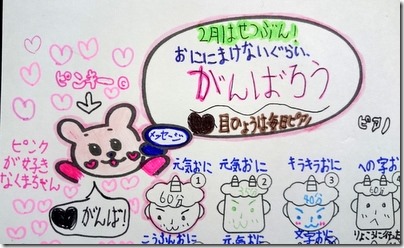 2月はせつぶん!
おににまけないぐらい、
がんばろう
目のようは毎日ピアノ
ピンキー
メッセージ
ピアノ
ピンク
が好き
なくまちゃん
がんば!
元気おに
元気おに
キラキラおに
への字お
1
2
3
4
60分
40分
こうふんおに
元気おに
りょこうに行った